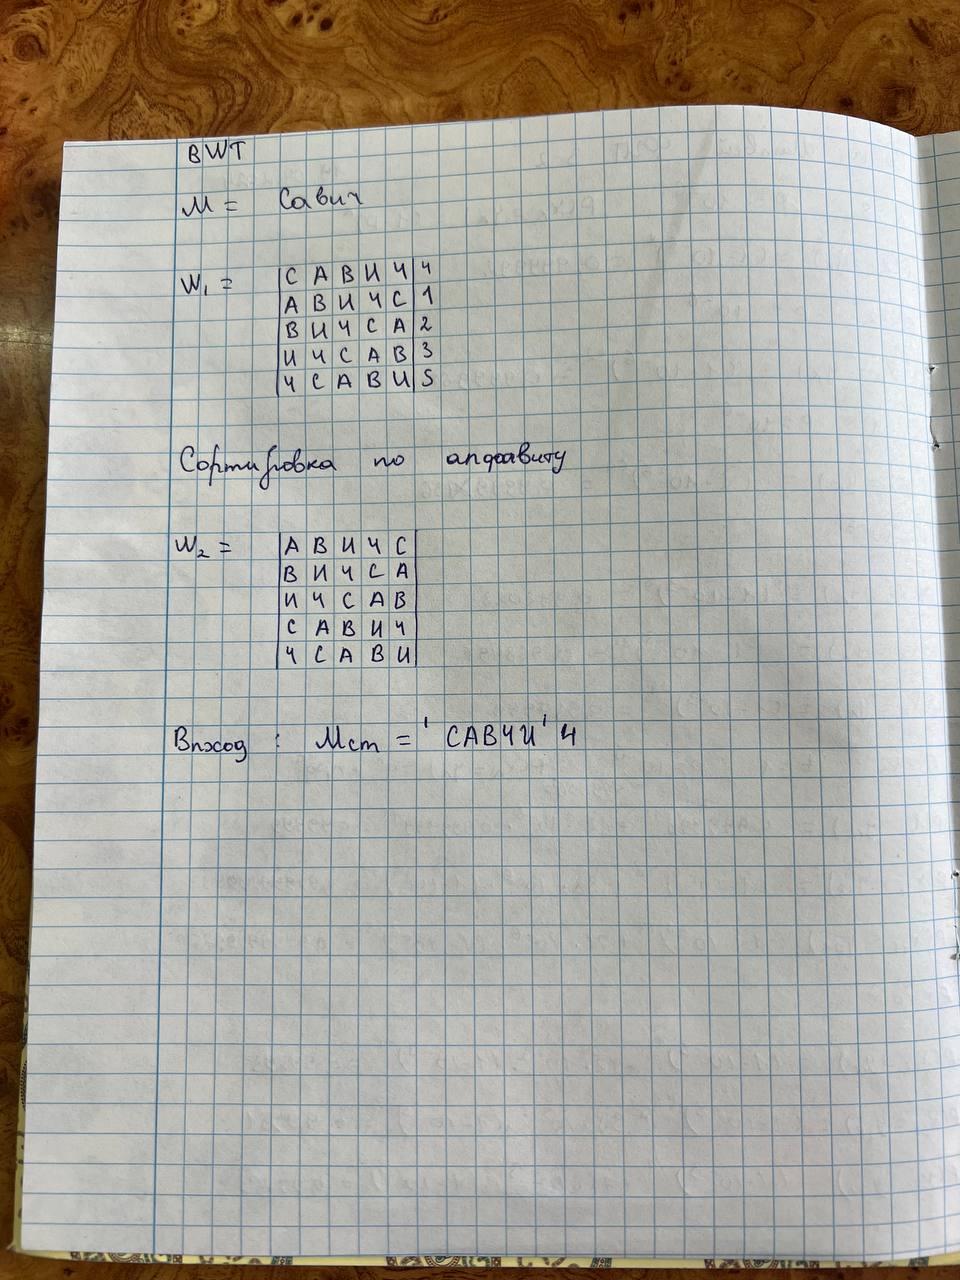 BWT
M = Савич
W₁ = | С А В И Ч | 4
| А В И Ч С | 1
| В И Ч С А | 2
| И Ч С А В | 3
| Ч С А В И | 5
Сортировка по алфавиту
W₂ = | А В И Ч С |
| В И Ч С А |
| И Ч С А В |
| С А В И Ч |
| Ч С А В И |
Выход : Mст = ' САВЧИ ' 4